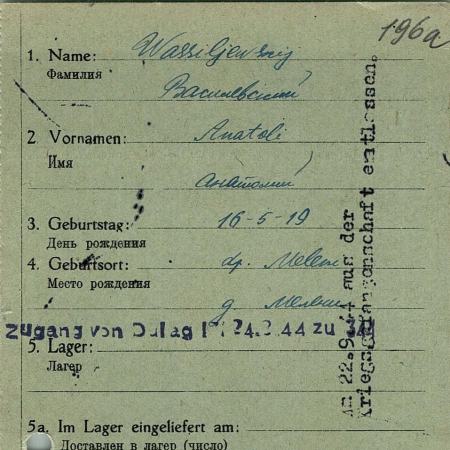 196a
1. Name: Wassiljewskij
Фамилия Василевский
2. Vornamen: Anatoli
Имя Анатолий
3. Geburtstag: 16-5-19
День рождения
4. Geburtsort: др.
Место рождения д.
Zugang von Dulag 24.3.44 zu
5. Lager:
Лагер
5a. Im Lager eingeliefert am:
Доставлен в лагер (число)
22.9.44 aus der
Kriegsgefangenschaft entlassen.